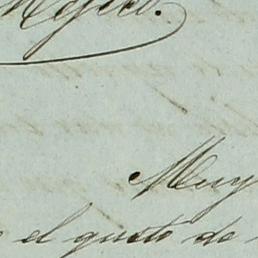 Mejico.
Muy
el gusto de